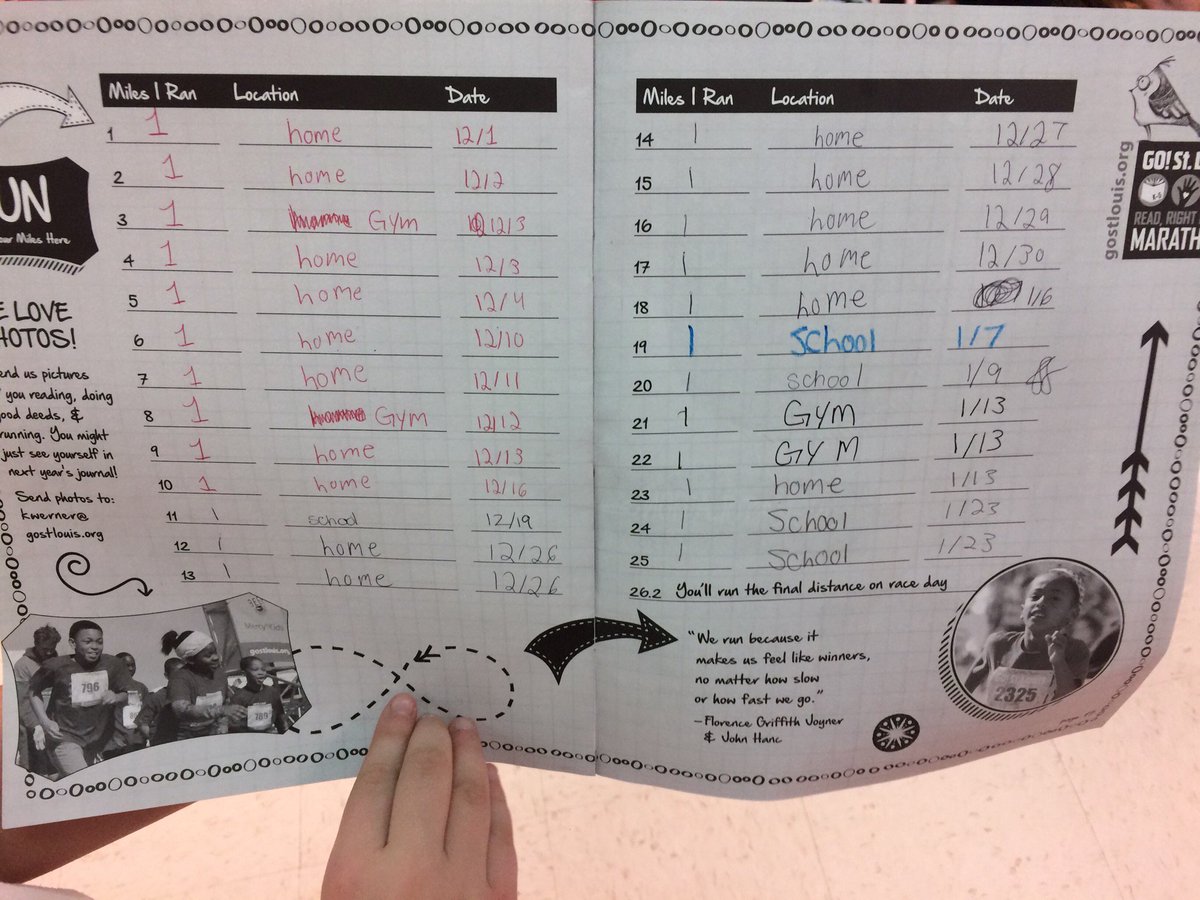 Miles I Ran Location Date
1 1 home 12/1
2 1 home 12/2
3 1 Gym 12/3
4 1 home 12/3
5 1 home 12/4
6 1 home 12/10
7 1 home 12/11
8 1 Gym 12/12
9 1 home 12/13
10 1 home 12/16
11 1 school 12/19
12 1 home 12/26
13 1 home 12/26
UN
our Miles Here
E LOVE
HOTOS!
end us pictures
you reading, doing
ood deeds, &
running. You might
just see yourself in
next year's journal!
Send photos to:
kwerner@
gostlouis.org
796
789
gostlouis.org
Miles I Ran Location Date
14 1 home 12/27
15 1 home 12/28
16 1 home 12/29
17 1 home 12/30
18 1 home 1/6
19 1 School 1/7
20 1 school 1/9
21 1 Gym 1/13
22 1 GYM 1/13
23 1 home 1/13
24 1 School 1/23
25 1 School 1/23
26.2 You'll run the final distance on race day
"We run because it
makes us feel like winners,
no matter how slow
or how fast we go."
—Florence Griffith Joyner
& John Hanc
2325
gostlouis.org
GO! St. L
READ, RIGHT
MARATH